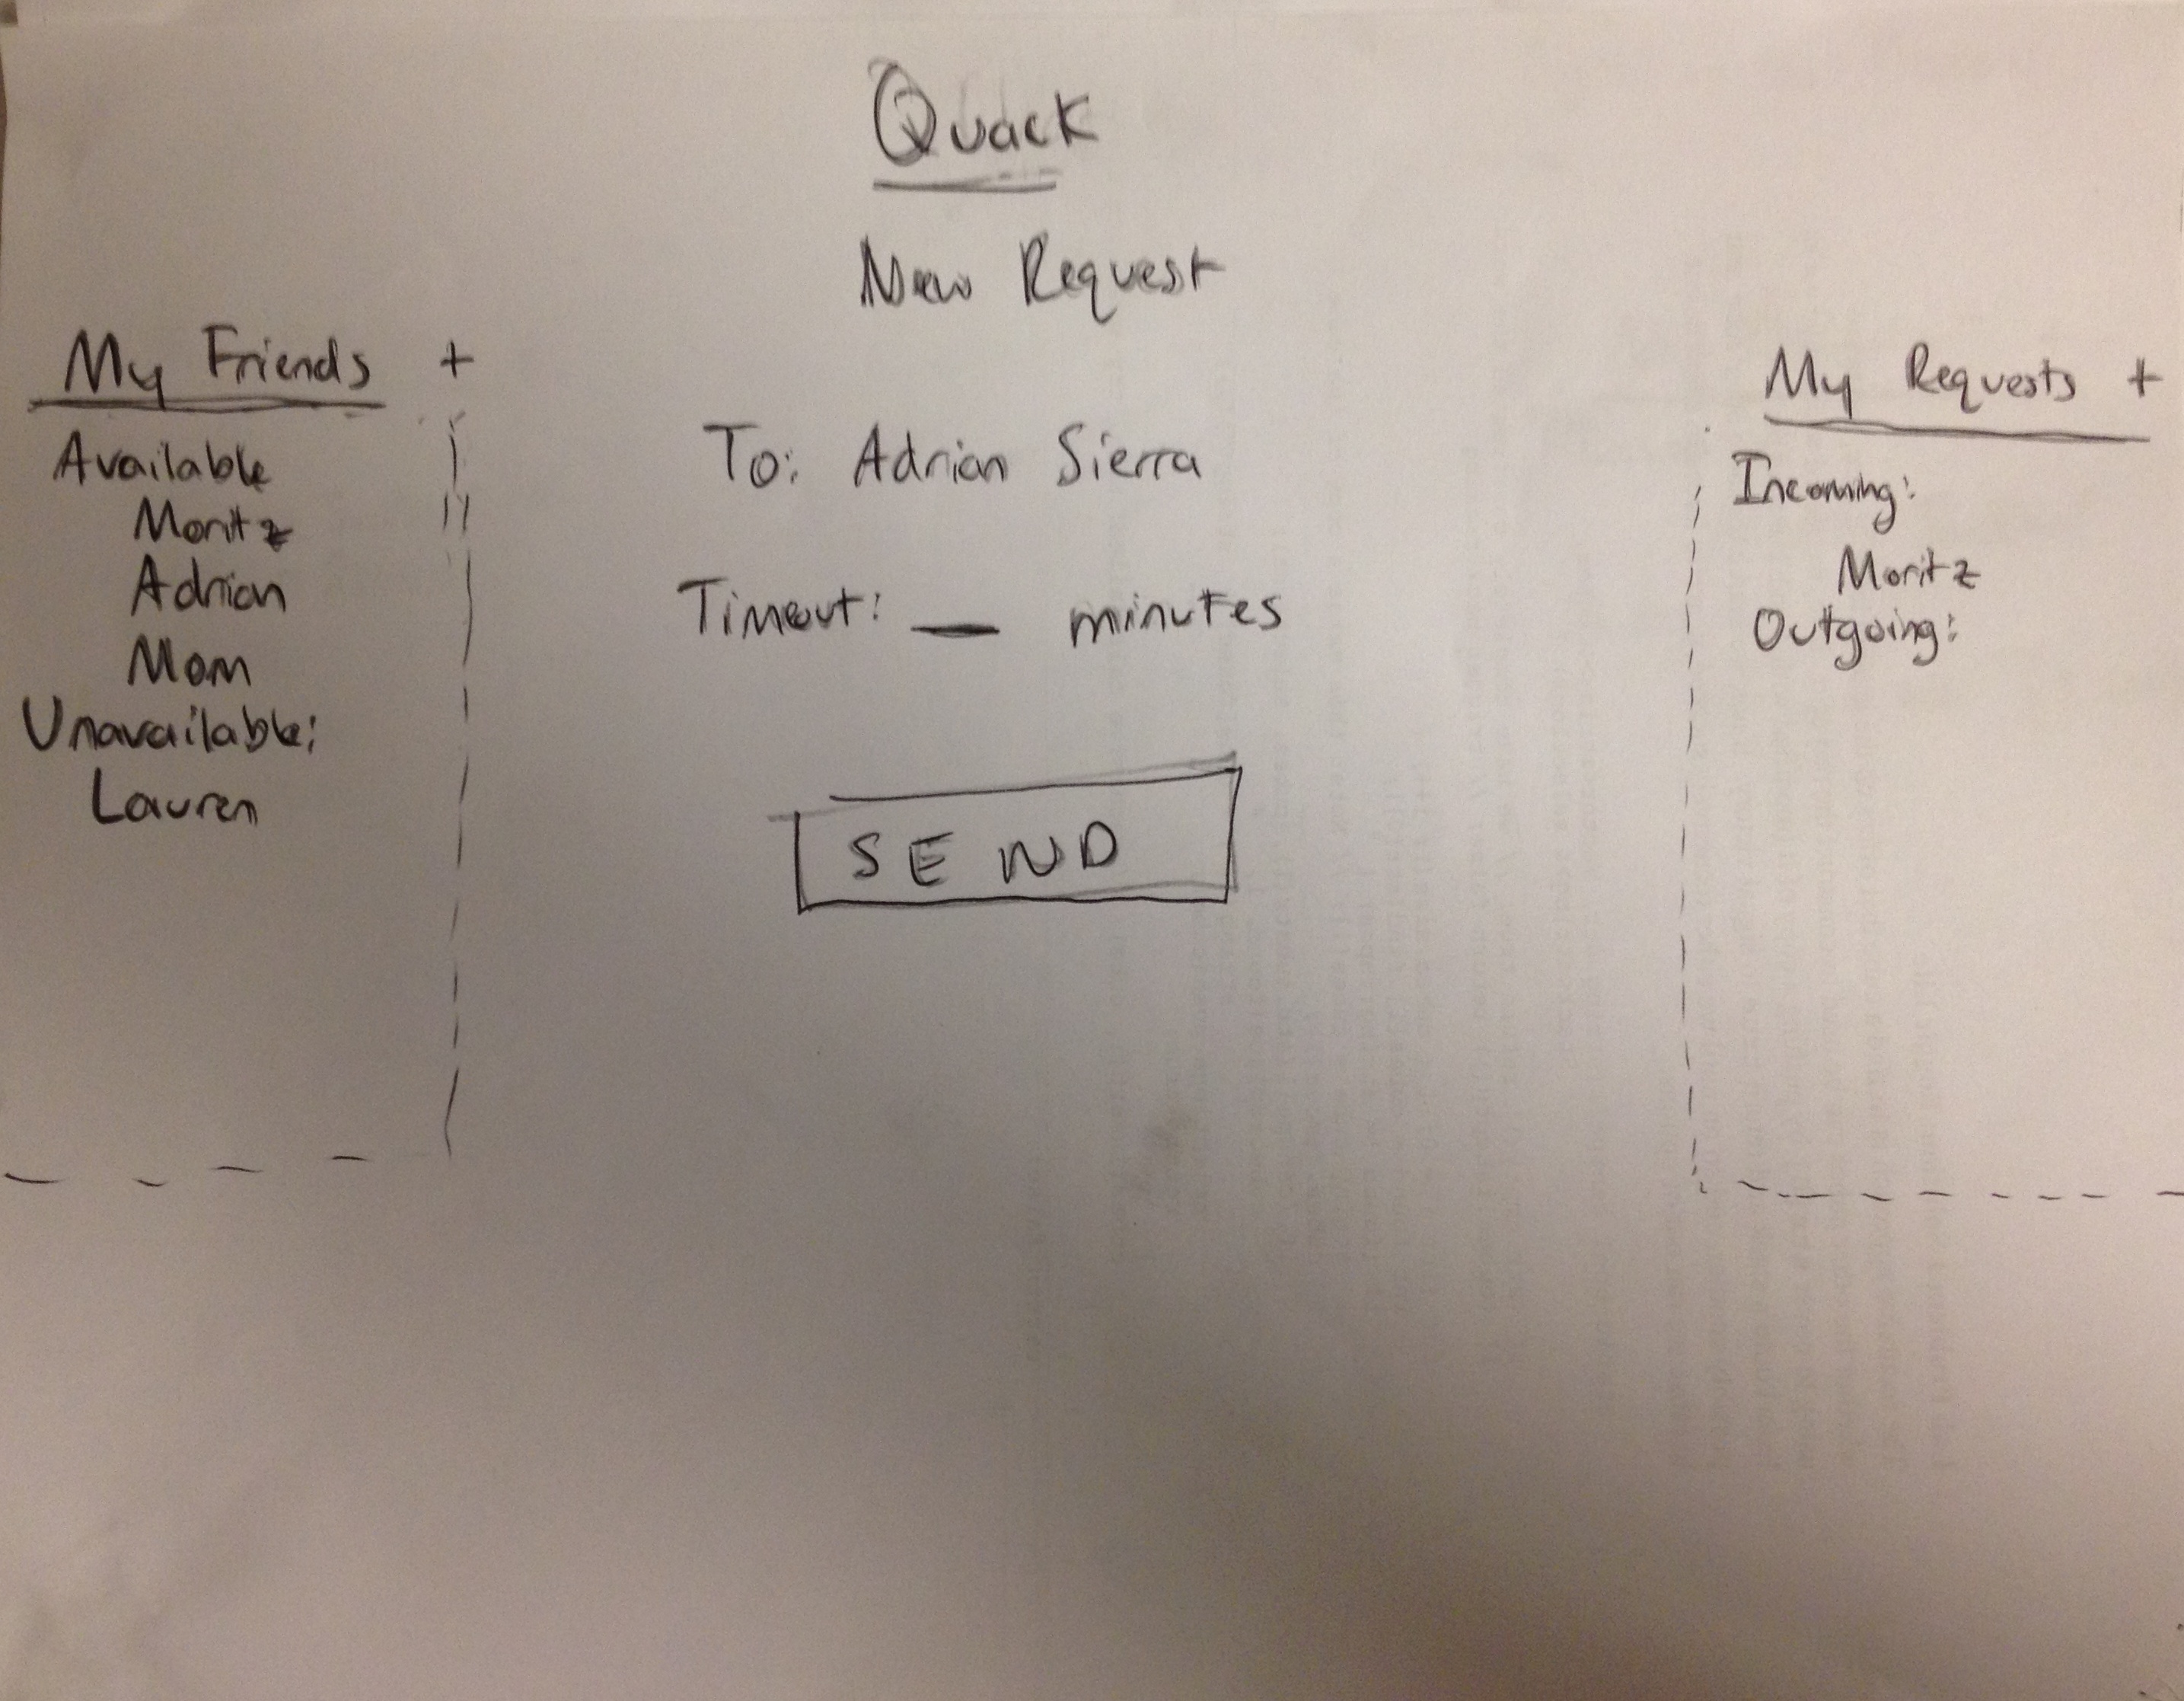 Quack
New Request
My Friends +
Available
Moritz
Adrian
Mom
Unavailable:
Lauren
To: Adrian Sierra
Timeout: _ minutes
SEND
My Requests +
Incoming:
Moritz
Outgoing: